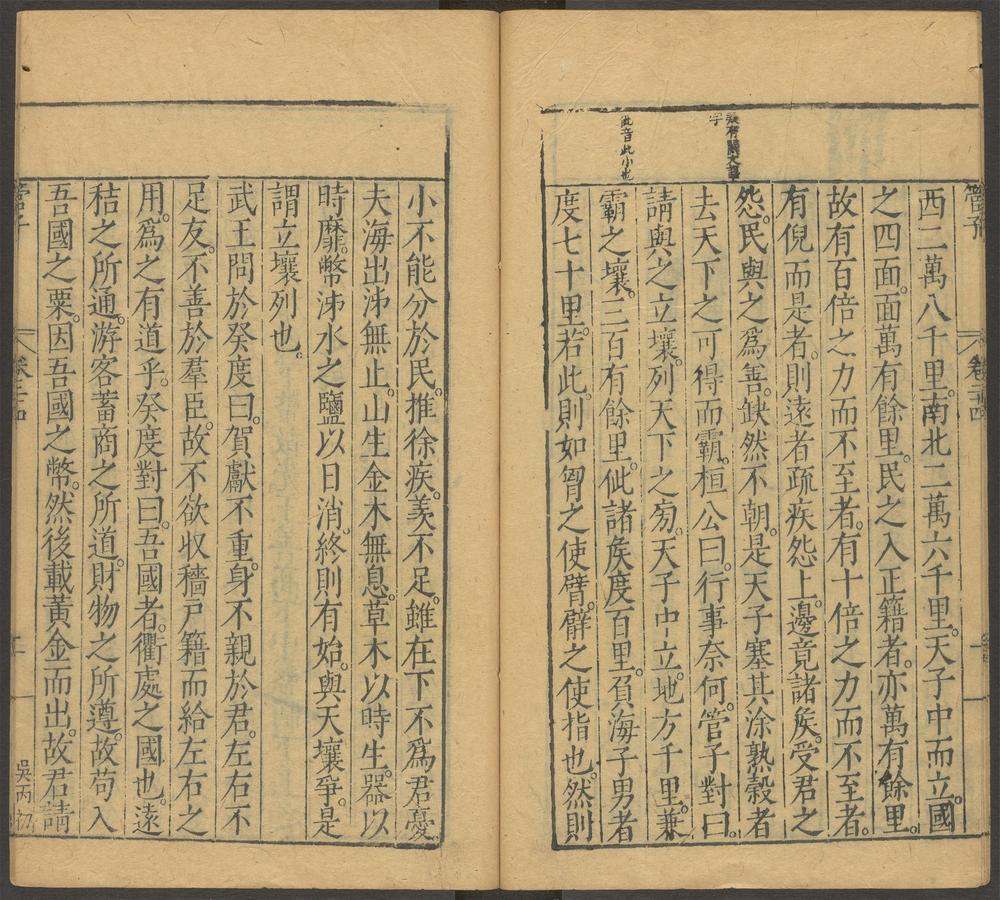 管子
卷二十四
疑有闕文等
字
佌音此小也
西二萬八千里。南北二萬六千里。天子中而立。國
之四面。面萬有餘里。民之入正籍者。亦萬有餘里。
故有百倍之力而不至者。有十倍之力而不至者。
有倪而是者。則遠者疏疾怨上。邊竟諸矦。受君之
怨。民與之爲善。缺然不朝。是天子塞其涂。熟穀者
去。天下之可得而霸。桓公曰。行事奈何。管子對曰。
請與之立壤。列天下之㫄。天子中立。地方千里。兼
霸之壤。三百有餘里。佌諸矦度百里。負海子男者
度七十里。若此。則如胷之使臂。臂之使指也。然則
小不能分於民。推徐疾。羨不足。雖在下不爲君憂。
夫海出泲無止。山生金木無息。草木以時生。器以
時靡。幣泲水之鹽以日消。終則有始。與天壤爭。是
謂立壤列也。
武王問於癸度曰。賀獻不重。身不親於君。左右不
足。友。不善於羣臣。故不欲收穡戸籍而給左右之
用。爲之有道乎。癸度對曰。吾國者。衢處之國也。遠
秸之所通。游客蓄商之所道。財物之所遵。故苟入
吾國之粟。因吾國之幣。然後載黃金而出。故君請
管子
卷二十四
吳丙初